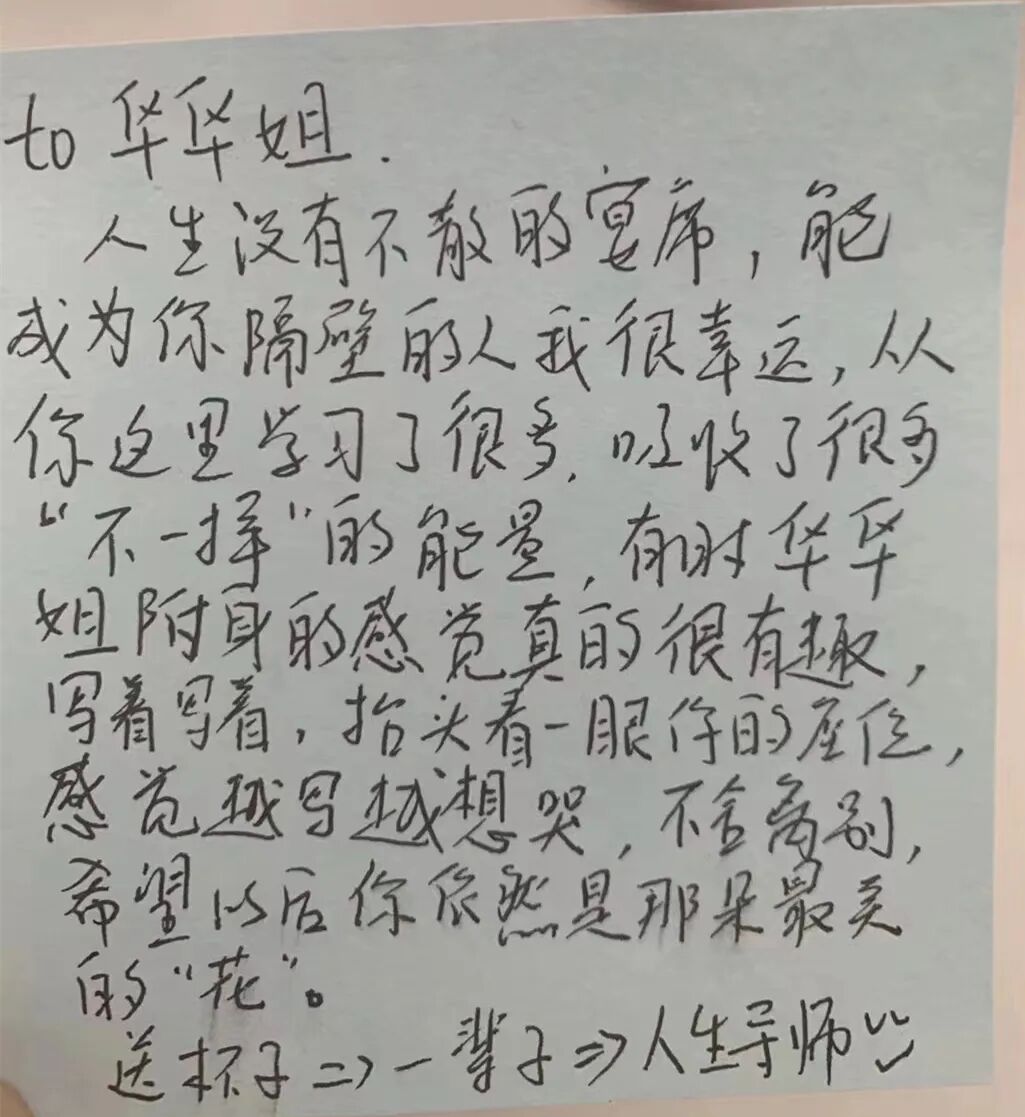 to 华华姐.
人生没有不散的宴席，能
成为你隔壁的人我很幸运，从
你这里学习了很多，吸收了很多
“不一样”的能量，有时华华
姐附身的感觉真的很有趣，
写着写着，抬头看一眼你的座位，
感觉越写越想哭，不舍离别，
希望以后你依然是那朵最美
的“花”。
送杯子=>一辈子=>人生导师